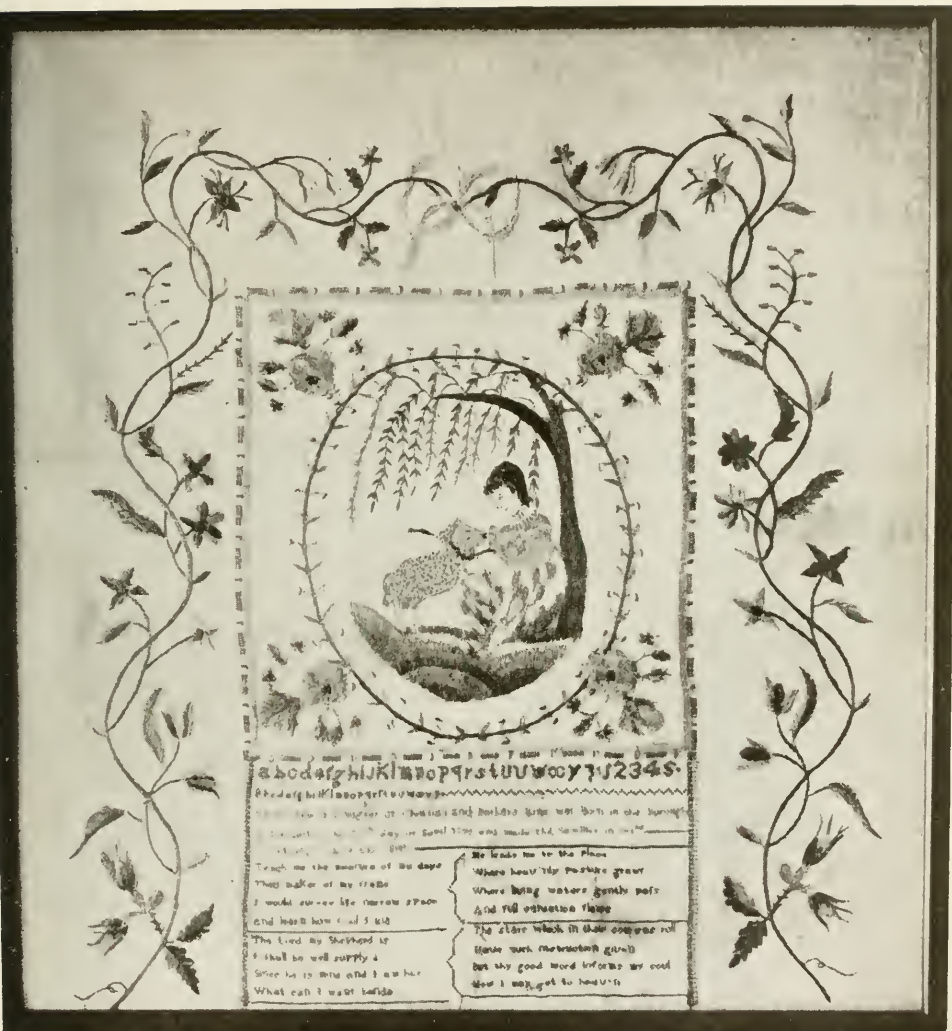 abcdefghIJKlmnopqrstUUWxyz12345.
Abcdefghiklmnopqrstuvwxyz
of Christian and was Born in the
day of April and made this Sampler in
Teach me the measure of my days
Thou maker of my frame
I would survey life narrow space
And learn how frail I am
The Lord my Shepherd is
I shall be well supply d
Since he is mine and I am his
What can I want beside
He leads me to the Place
Where heav'nly Pasture grows
Where living waters gently pass
And full salvation flows
The stars which in their courses roll
Have much instruction given
But thy good word informs my soul
How I may get to heaven